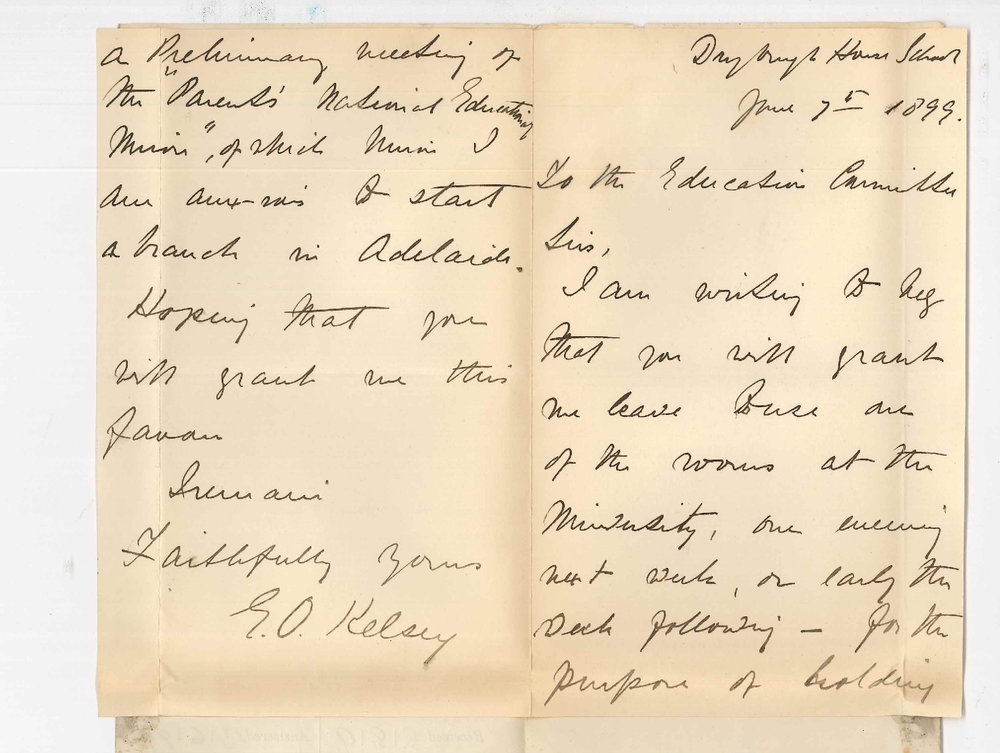 Dryburgh House School
June 7th 1899.
To the Education Committee
Sirs,
I am writing to beg
that you will grant
me leave to use one
of the rooms at the
University, one evening
next week, or early the
week following – for the
purpose of holding
a Preliminary meeting of
the "Parents' National Educational
Union", of which Union I
am anxious to start
a branch in Adelaide.
Hoping that you
will grant me this
favour
I remain
Faithfully yours
E. O. Kelsey